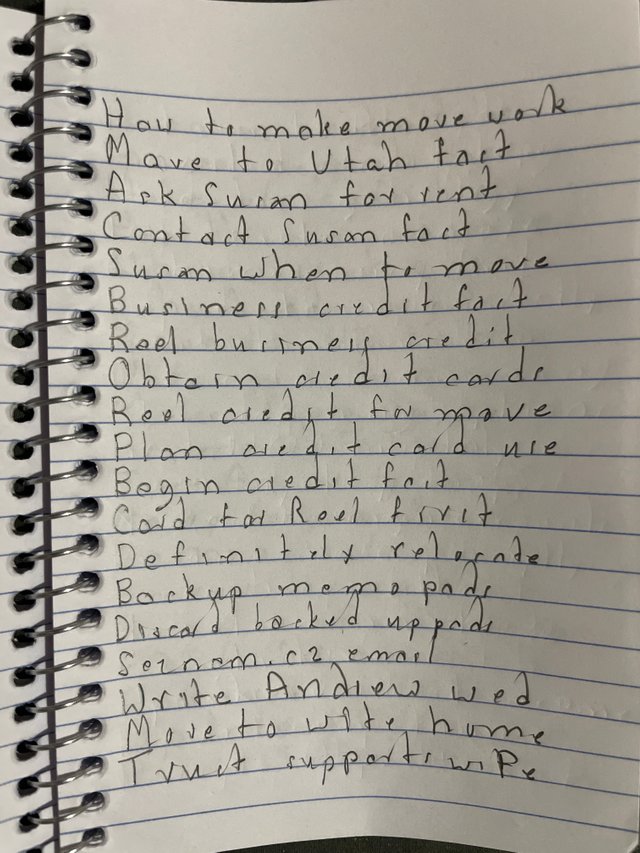 How to make move work
Move to Utah fact
Ask Susan for rent
Contact Susan fact
Susan when to move
Business credit fact
Reel business credit
Obtain credit cards
Reel credit for move
Plan credit card use
Begin credit fact
Card for Reel first
Definitely relocate
Backup memo pads
Discard backed up pads
email
Write Andrew wed
Move to wife home
Trust supports wife